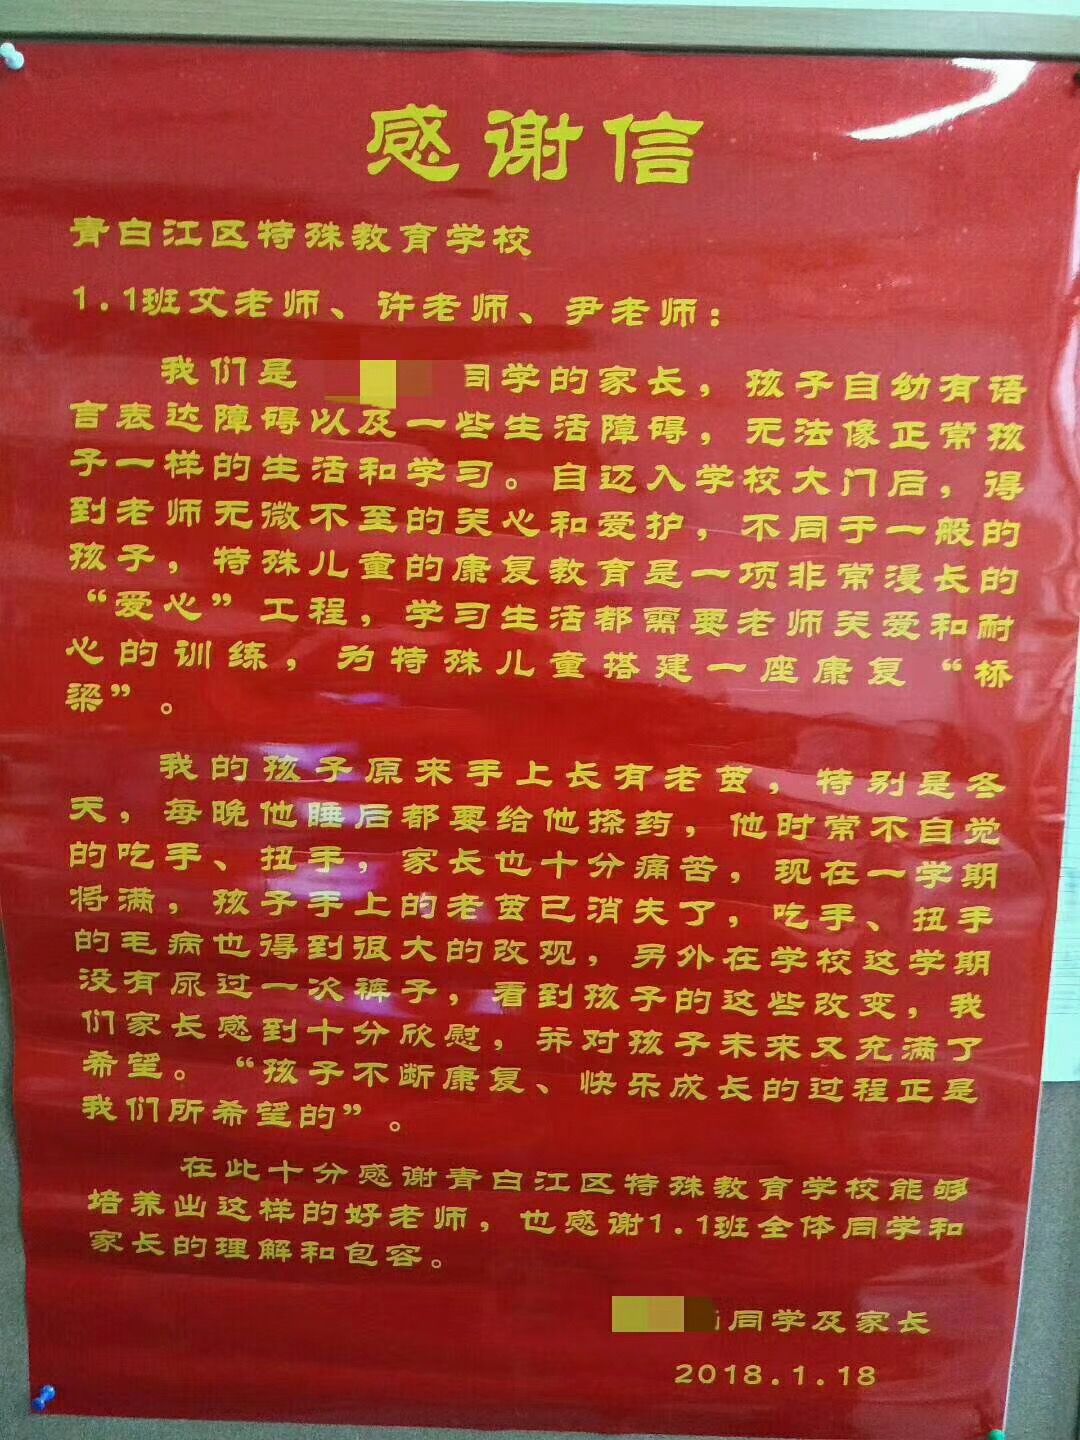 感谢信
青白江区特殊教育学校
1.1班艾老师、许老师、尹老师：
我们是 同学的家长，孩子自幼有语
言表达障碍以及一些生活障碍，无法像正常孩
子一样的生活和学习。自迈入学校大门后，得
到老师无微不至的关心和爱护，不同于一般的
孩子，特殊儿童的康复教育是一项非常漫长的
“爱心”工程，学习生活都需要老师关爱和耐
心的训练，为特殊儿童搭建一座康复“桥
梁”。
我的孩子原来手上长有老茧，特别是冬
天，每晚他睡后都要给他搽药，他时常不自觉
的吃手、扭手，家长也十分痛苦，现在一学期
将满，孩子手上的老茧已消失了，吃手、扭手
的毛病也得到很大的改观，另外在学校这学期
没有尿过一次裤子，看到孩子的这些改变，我
们家长感到十分欣慰，并对孩子未来又充满了
希望。“孩子不断康复、快乐成长的过程正是
我们所希望的”。
在此十分感谢青白江区特殊教育学校能够
培养出这样的好老师，也感谢1.1班全体同学和
家长的理解和包容。
同学及家长
2018.1.18